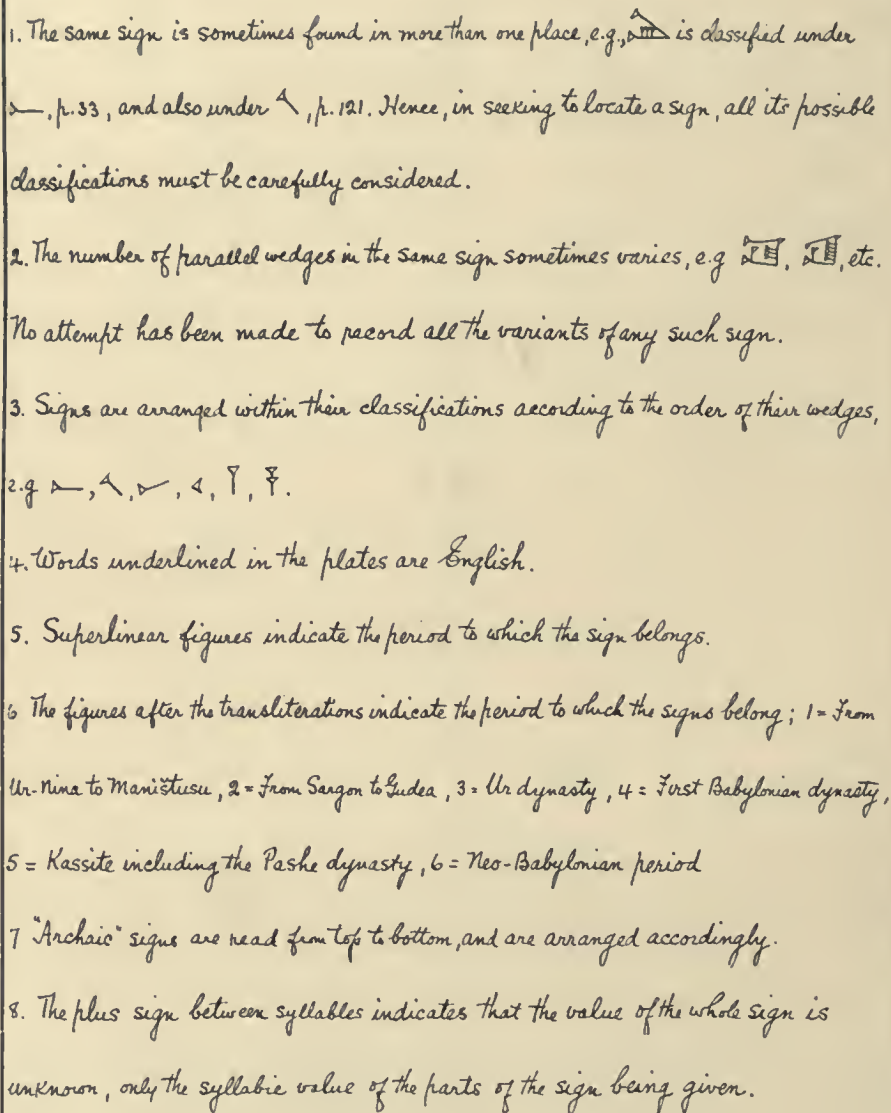 1. The same sign is sometimes found in more than one place, e.g., is classified under
, p. 33, and also under , p. 121. Hence, in seeking to locate a sign, all its possible
classifications must be carefully considered.
2. The number of parallel wedges in the same sign sometimes varies, e.g , , etc.
No attempt has been made to record all the variants of any such sign.
3. Signs are arranged within their classifications according to the order of their wedges,
e.g 𒀸, , , 𒌋, 𒁹, .
4. Words underlined in the plates are English.
5. Superlinear figures indicate the period to which the sign belongs.
6 The figures after the transliterations indicate the period to which the signs belong; 1 = From
Ur-Nina to Maništusu, 2 = From Sargon to Gudea, 3 = Ur dynasty, 4 = First Babylonian dynasty,
5 = Kassite including the Pashe dynasty, 6 = Neo-Babylonian period
7 "Archaic" signs are read from top to bottom, and are arranged accordingly.
8. The plus sign between syllables indicates that the value of the whole sign is
unknown, only the syllabic value of the parts of the sign being given.